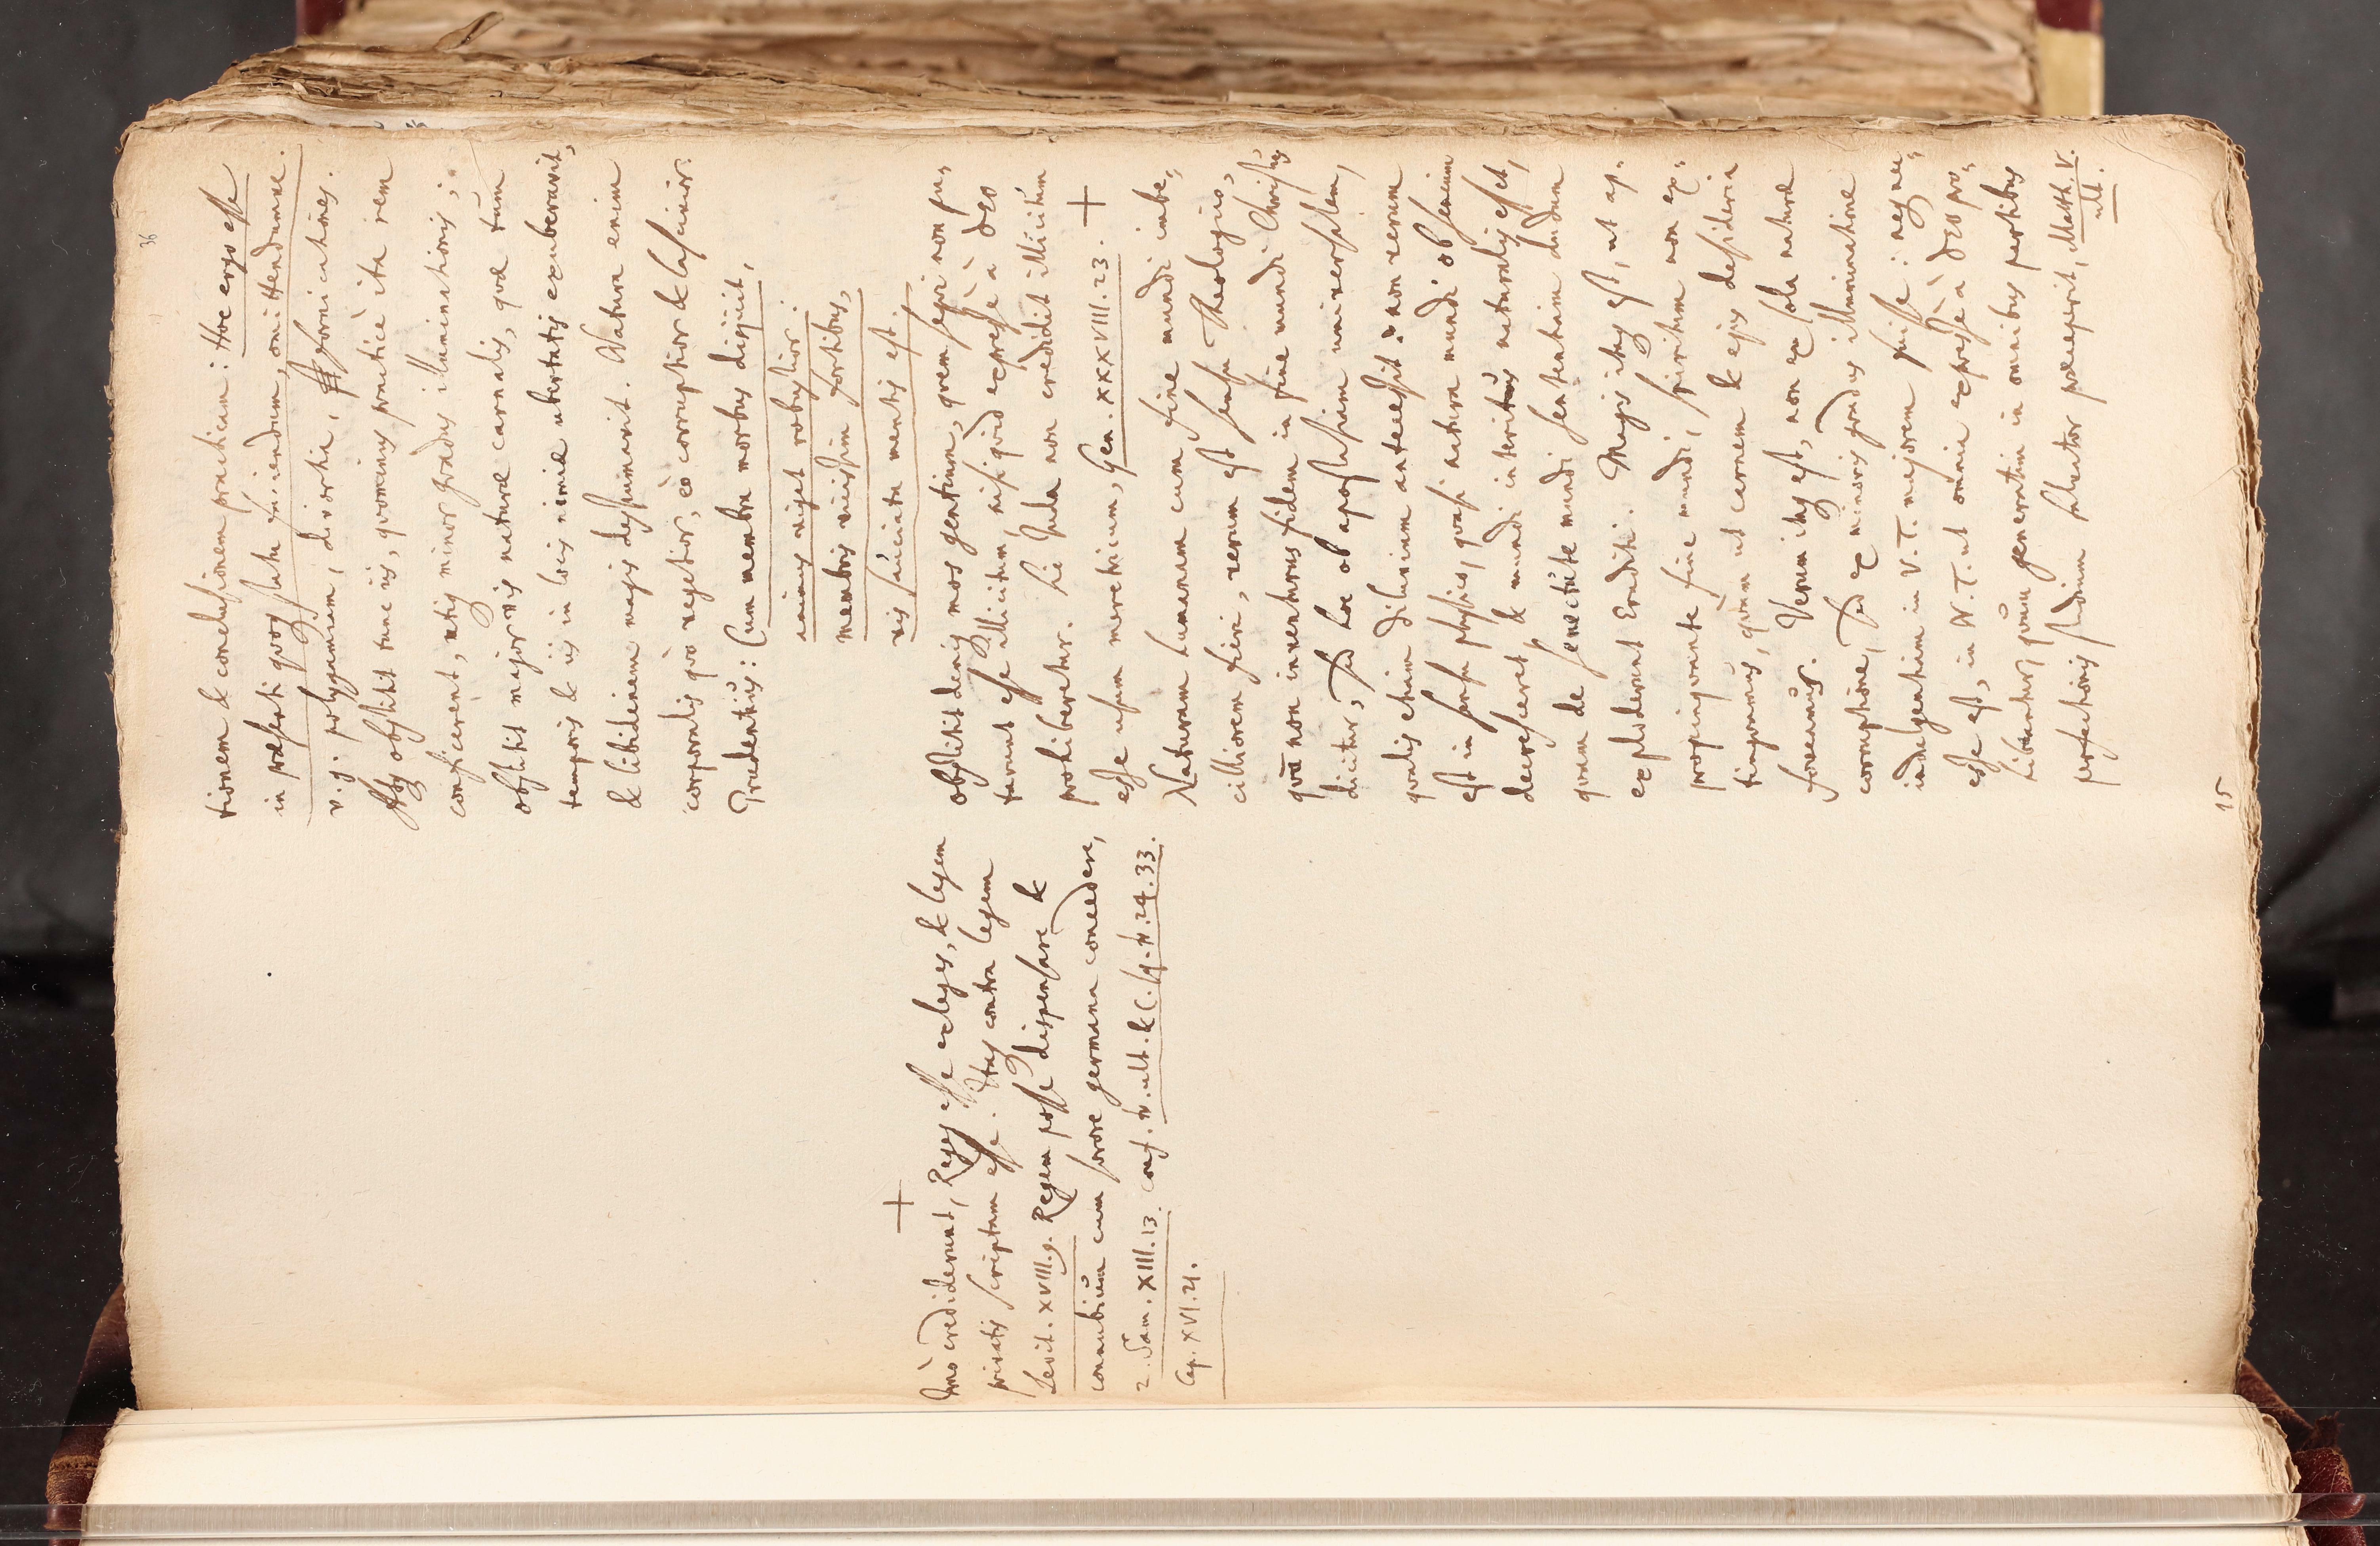 36
tionem & conclusionem practicam: Hoc ergo esse
in præsenti quoq; statu faciendum, omittendumne.
v. g. polygamiam, divortia, fornicationes.
Atq; obstitit tunc iis, quominus practicè ita rem
conficerent, utiq; minor gradus illuminationis;
obstitit majoris naturæ carnalis, qvæ tùm
temporis & iis in locis nimiæ ubertatis exuberavit,
& libidinem magis despumavit. Natura enim
corporalis qvò vegetior, eò corruptior & lascivior.
Prudentius: Cum membra morbus disjicit,
animus viget robustior:
membris vicissim fortibus,
vis sauciata mentis est.
obstitit deniq; mos gentium, qvem seqvi non pu-
tarunt esse illicitum, nisi qvid expresse à Deo
prohiberetur. Sic Juda non credidit illicitum
esse usum meretricum, Gen. XXXVIII. 23. +
Naturam humanam cum fine mundi imbe-
cilliorem fieri, verum est sensu Theologico,
qvâ non inventurus fidem in fine mundi Christus
dicitur, sed hoc ob apostasiam universalem,
qvalis etiam diluvium antecessit: non verum
est in sensu physico, qvasi natura mundi ob senium
decresceret & mundi interitus naturalis esset,
qvam de senectute mundi sententiam dudum
exploderunt Eruditi. Magis itaq; est, ut ap-
propinqvante fine mundi, spiritum non ex-
tingvamus, qvàm ut carnem & ejus desideria
foveamus. Verum itaq; est, non ex sola naturæ
corruptione, sed ex minoris gradus illuminatione
indulgentiam in V. T. majorem fuisse: neq; nec-
esse est, in N. T. ut omnia expressè à Deo pro-
hibeantur, qvùm generatim in omnibus partibus
perfectionis studium Salvator præceperit, Matth. V.
ult.
15
+
Imò crediderunt, Reges esse exleges, & legem
privatis scriptam esse. Itaq; contra legem
Levit. XVIII. 9. Regem posse dispensare &
connubium cum sorore germana concedere,
2. Sam. XIII. 13. conf. . ult. & C. 14. . 24. 33.
Cap. XVI. 21.